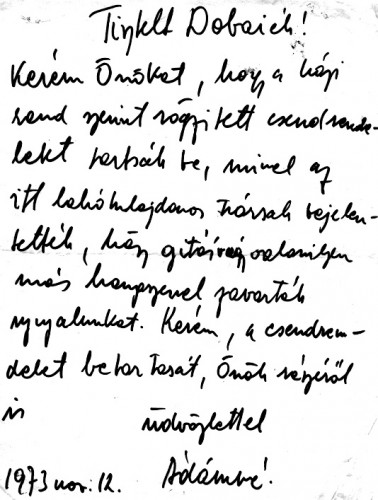 Tisztelt Dobaiék!
Kérem Önöket, hogy a házi
rend szerint rögzitett csendrende-
letet tartsák be, mivel az
itt lakótulajdonos társak bejelen-
tették, hogy gitár vagy valamilyen
más hangszerrel zavarták
nyugalmukat. Kérem, a csendren-
deletet betartását, Önök részéről
is
üdvözlettel
Ádámné.
1973 nov. 12.